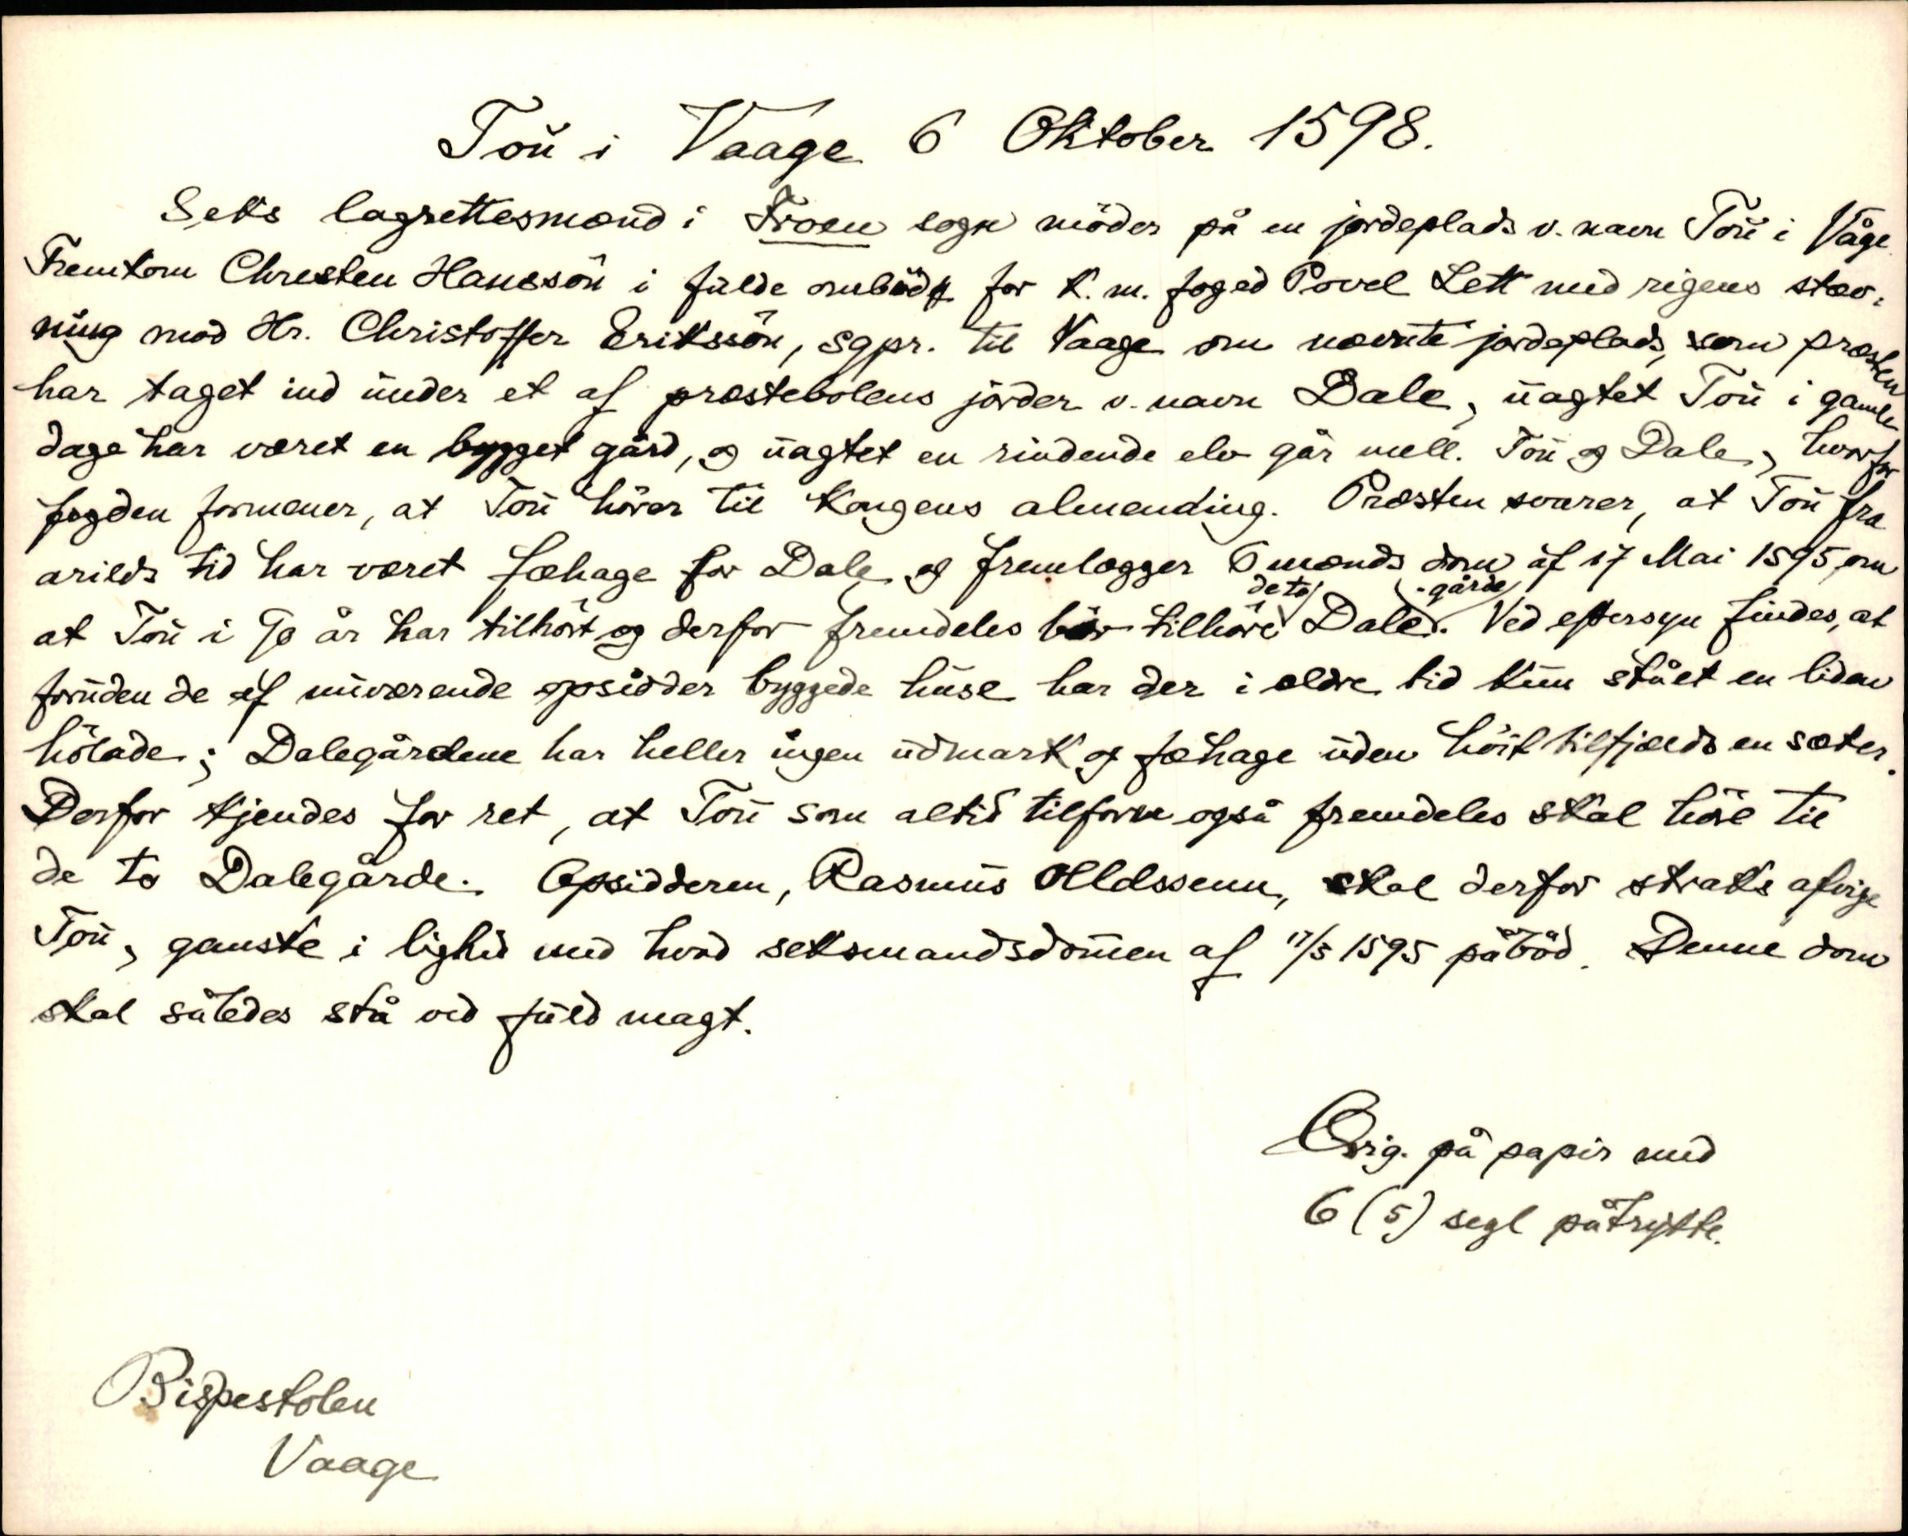 Toŭ i Vaage 6 Oktober 1598.
Seks lagrettesmænd i Froen sogn möder på en jordeplads v. navn Toŭ i Våge.
Fremkom Christen Hanssön i fŭlde ombŭd for k. m. foged Povel Lett med rigens stæv-
ning mod Hr. Christoffer Erikssön, sgpr. til Vaage om nævnte jordeplads, som præsten
har taget ind ŭnder et af præstebolens jorder v. navn Dale, ŭagtet Toŭ i gamle
dage har været en bygget gård, og ŭagtet en rindende elv går mell. Toŭ og Dale, hvorfor
fogden formener, at Toŭ hörer til Kongens almending. Præsten svarer, at Toŭ fra
arilds tid har været fæhage for Dale og fremlægger 6 mænds dom af 17 Mai 1595, om
at Toŭ i 90 år har tilhört og derfor fremdeles bör tilhöre de to Dale-gårde. Ved eftersyn findes, at
forŭden de af nŭværende opsidder byggede hŭse har der i ældre tid kŭn stået en liden
hölade; Dalegårdene har heller ingen ŭdmark og fæhage ŭden höit tilfjælds en sæter.
Derfor kjendes for ret, at Toŭ som altid tilforn også fremdeles skal höre til
de to Dalegårde. Opsidderen, Rasmŭs Olldssenn, skal derfor straks afvige
Toŭ, ganske i lighed med hvad seksmandsdommen af 17/5 1595 påböd. Denne dom
skal således stå ved fŭld magt.
Orig. på papir med
6 (5) segl påtrykte.
Bispestolen
Vaage